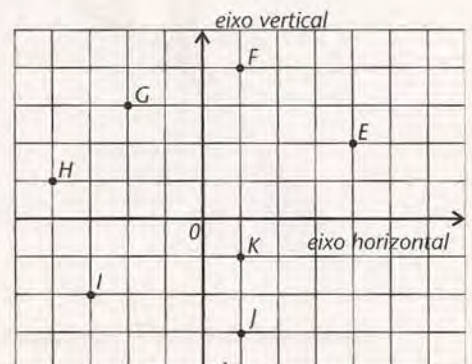 eixo vertical
F
G
E
H
0
eixo horizontal
K
I
J